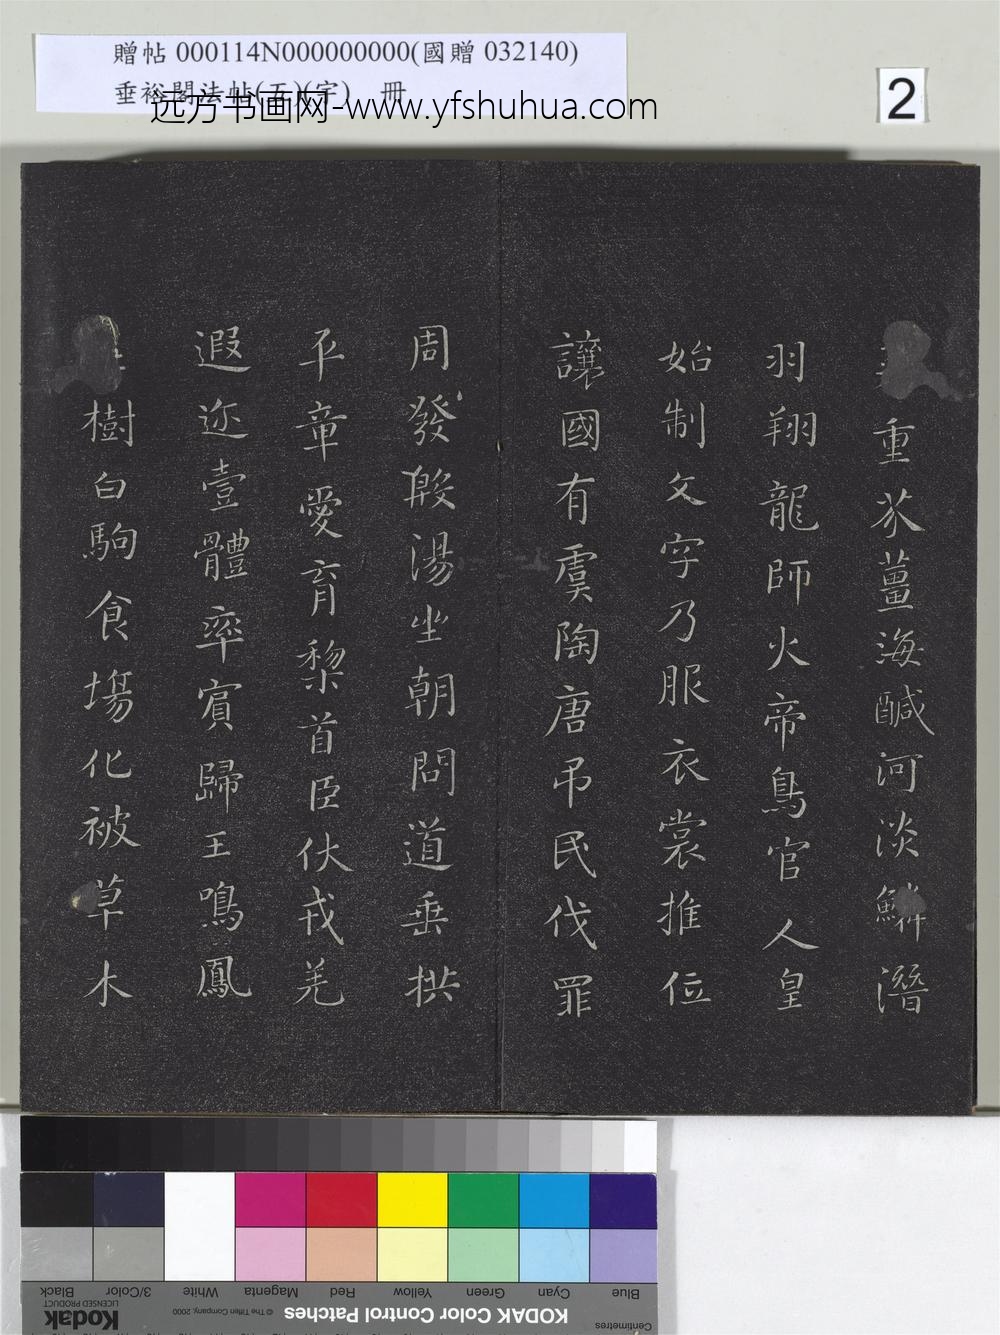 贈帖 000114N000000000(國贈 032140)
垂裕閣法帖(五)(字) 冊
远方书画网-www.yfshuhua.com
2
重芥薑海醎河淡鱗潛
羽翔龍師火帝鳥官人皇
始制文字乃服衣裳推位
讓國有虞陶唐吊民伐罪
周發殷湯坐朝問道垂拱
平章愛育黎首臣伏戎羌
遐迩壹體率賓歸王鳴鳳
樹白駒食場化被草木
Blue Cyan Green Yellow Red Magenta White 3/Color Black
Centimetres
KODAK Color Control Patches
© The Tiffen Company, 2000
Kodak
LICENSED PRODUCT